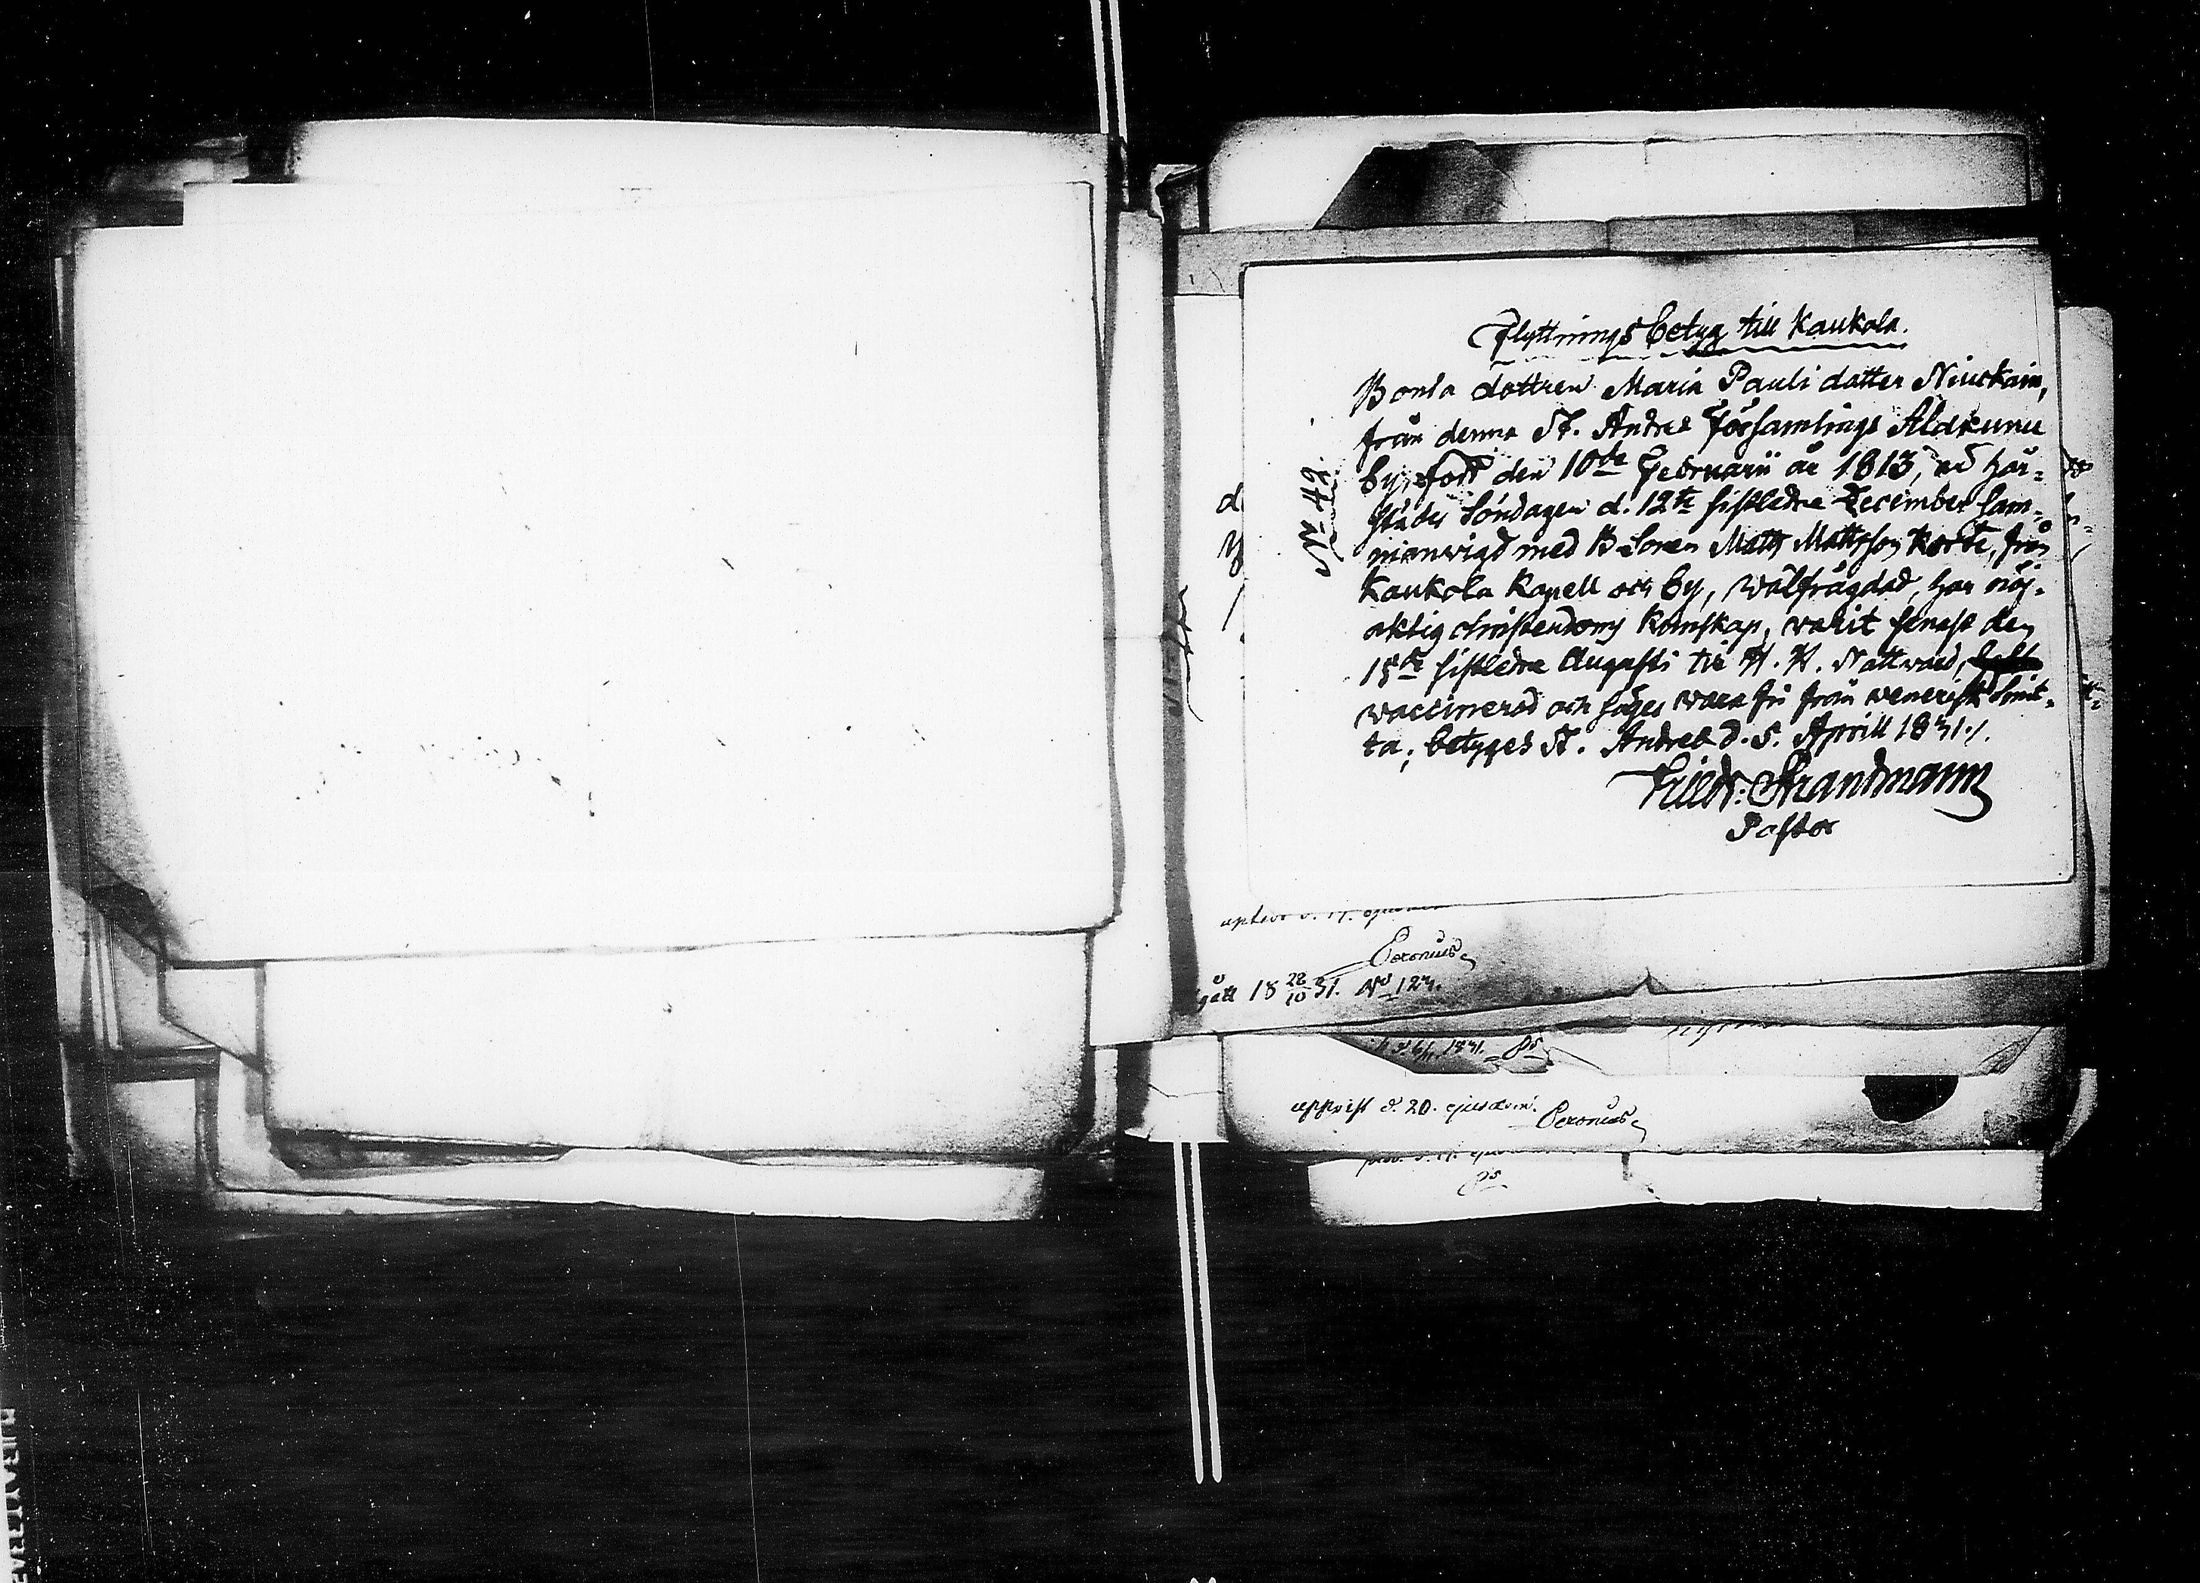 Flyttnings betyg till Kaukola.
Bonda dottren Maria Pauli dotter Niuckain,
från denna St. Andreæ Församlings Alakunu
by, född den 10de Februarii år 1813, är här-
städes Söndagen d. 12te sistledne December sam-
manvigd med B. Sonen Matts Mattsson Korte, från
Kaukola Kapell och by, wälfrägdad, har nöj-
aktig christendoms kunskap, varit senast den
15de sistledne Augusti till H. H. Nattvard,
vaccinerad och säges vara fri från venerisk smit-
ta; betyges St. Andreæ d. 5. Aprill 1831./.
Friedr: Strandmann
Pastor
No 49.
Ceronius
gått 18 28/10 31. No 123.
1831. Ps
upprist d. 20. ejusdem.
Ceronius
Ps